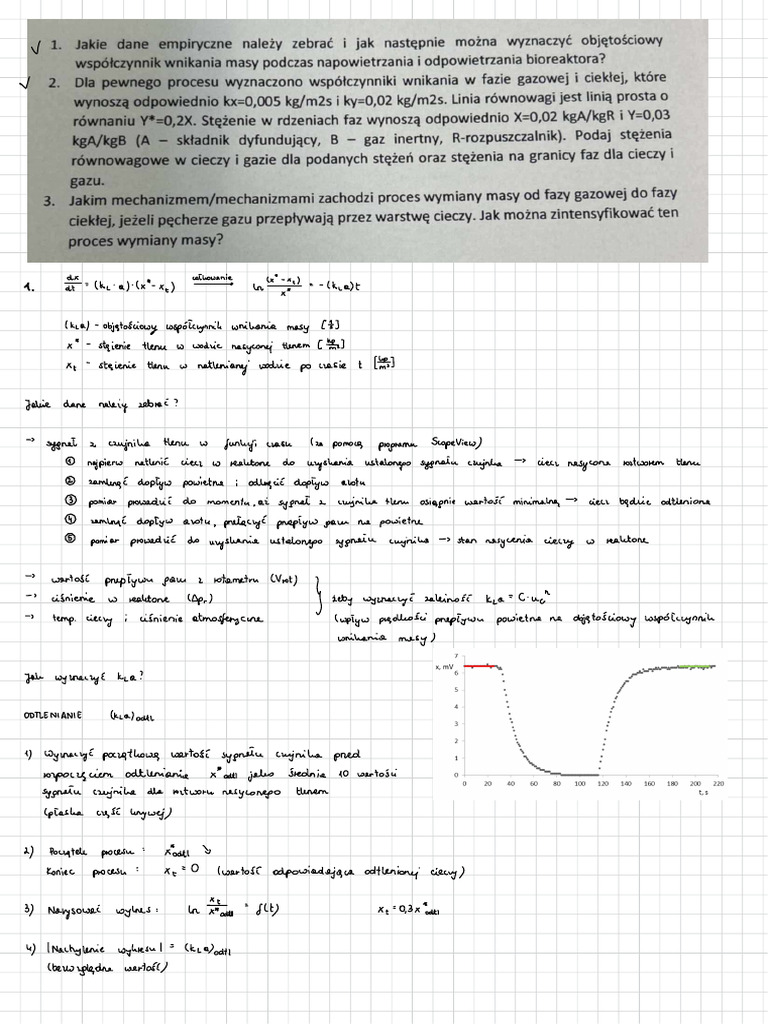 1. Jakie dane empiryczne należy zebrać i jak następnie można wyznaczyć objętościowy
współczynnik wnikania masy podczas napowietrzania i odpowietrzania bioreaktora?
2. Dla pewnego procesu wyznaczono współczynniki wnikania w fazie gazowej i ciekłej, które
wynoszą odpowiednio kx=0,005 kg/m2s i ky=0,02 kg/m2s. Linia równowagi jest linią prosta o
równaniu Y*=0,2X. Stężenie w rdzeniach faz wynoszą odpowiednio X=0,02 kgA/kgR i Y=0,03
kgA/kgB (A – składnik dyfundujący, B – gaz inertny, R-rozpuszczalnik). Podaj stężenia
równowagowe w cieczy i gazie dla podanych stężeń oraz stężenia na granicy faz dla cieczy i
gazu.
3. Jakim mechanizmem/mechanizmami zachodzi proces wymiany masy od fazy gazowej do fazy
ciekłej, jeżeli pęcherze gazu przepływają przez warstwę cieczy. Jak można zintensyfikować ten
proces wymiany masy?
1. dx/dt = (kL·a)·(x*-xt) całkowanie → ln (x*-xt)/x* = -(kLa)t
(kLa) - objętościowy współczynnik wnikania masy [1/s]
x* - stężenie tlenu w wodzie nasyconej tlenem [kg/m³]
xt - stężenie tlenu w natlenianej wodzie po czasie t [kg/m³]
Jakie dane należy zebrać?
→ sygnał z czujnika tlenu w funkcji czasu (za pomocą programu ScopeView)
① najpierw natlenić ciecz w reaktorze do uzyskania ustalonego sygnału czujnika → ciecz nasycona roztworem tlenu
② zamknąć dopływ powietrza i odkręcić dopływ azotu
③ pomiar prowadzić do momentu, aż sygnał z czujnika tlenu osiągnie wartość minimalną → ciecz będzie odtleniona
④ zamknąć dopływ azotu, przełączyć przepływ gazu na powietrze
⑤ pomiar prowadzić do uzyskania ustalonego sygnału czujnika → stan nasycenia cieczy w reaktorze
→ wartość przepływu gazu z rotametru (Vrot)
→ ciśnienie w reaktorze (Δpr)
→ temp. cieczy i ciśnienie atmosferyczne
żeby wyznaczyć zależność kLa = C·uGⁿ
(wpływ prędkości przepływu powietrza na objętościowy współczynnik
wnikania masy)
Jak wyznaczyć kLa?
ODTLENIANIE (kLa)odtl
1) Wyznaczyć początkową wartość sygnału czujnika przed
rozpoczęciem odtleniania x*odtl jako średnia 10 wartości
sygnału czujnika dla roztworu nasyconego tlenem
(płaska część krzywej)
x, mV
7
6
5
4
3
2
1
0
0 20 40 60 80 100 120 140 160 180 200 220
t, s
2) Początek procesu : x*odtl
Koniec procesu : xt = 0 (wartość odpowiadająca odtlenionej cieczy)
3) Narysować wykres : ln xt/x*odtl = f(t) xt = 0,3x*odtl
4) |Nachylenie wykresu| = (kLa)odtl
(bezwzględna wartość)